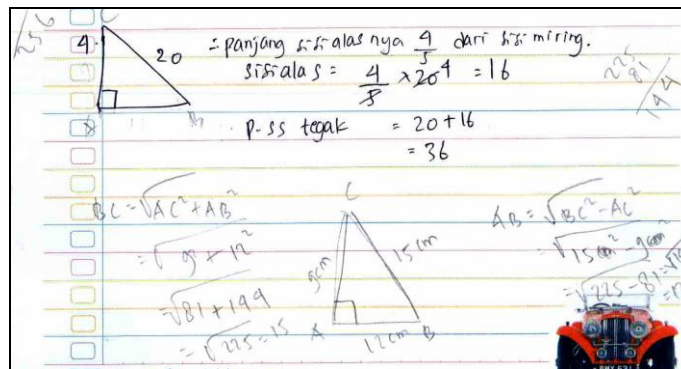 256
C
4.
20
= panjang sisi alas nya 4/5 dari sisi miring.
sisi alas = 4/5 × 20⁴ = 16
p. ss tegak = 20 + 16
= 36
225
81
BC = √AC² + AB²
= √9² + 12²
= √81 + 144
= √225 = 15
C
9cm
15 cm
A
12 cm B
AB = √BC² - AC²
= √15cm² - 9cm²
= √225 - 81 =